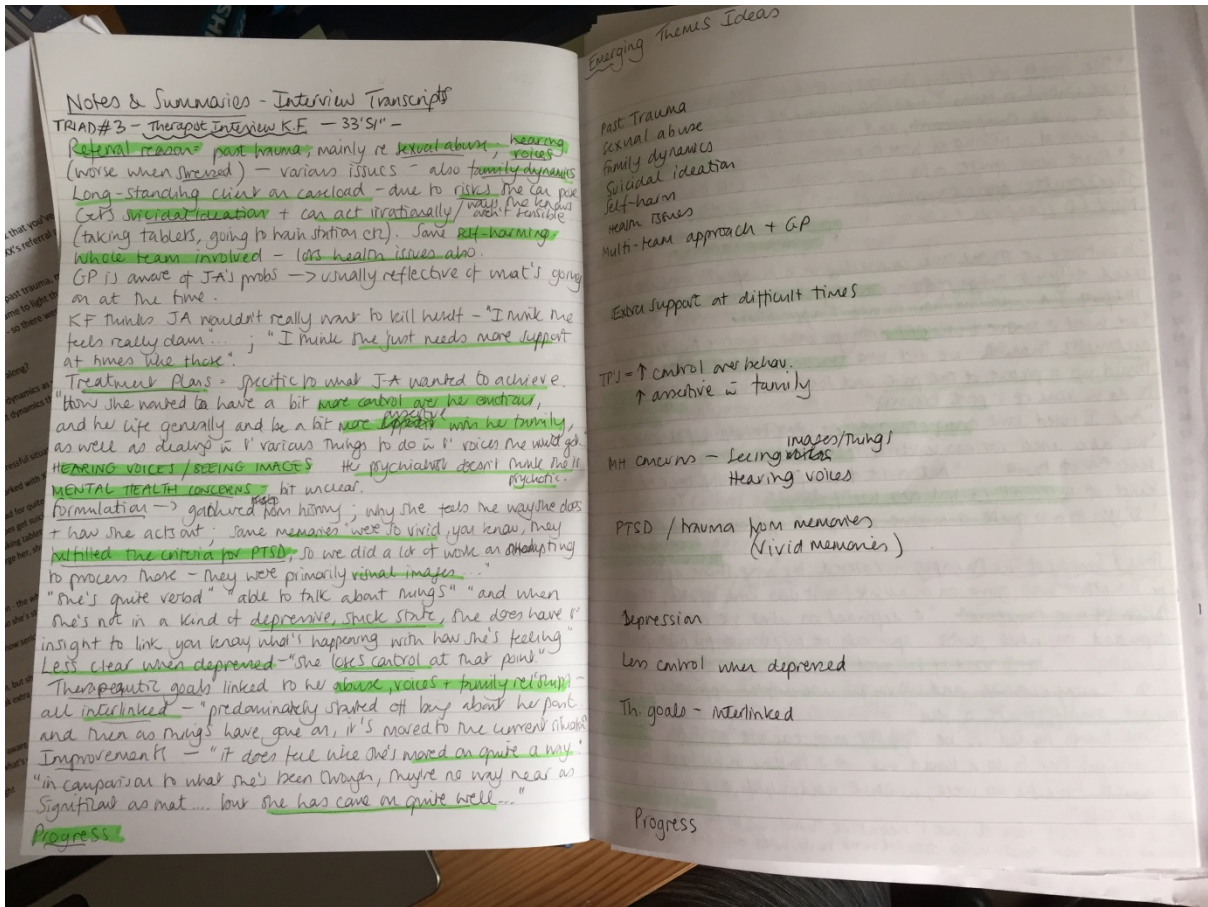 Notes & Summaries - Interview Transcripts
TRIAD #3 - Therapist Interview K.F - 33'51" -
Referral reason = past trauma, mainly re sexual abuse, hearing voices
(worse when stressed) - various issues - also family dynamics
Long-standing client on caseload - due to risks she can pose
Gets suicidal ideation + can act irrationally / ways she knows aren't sensible
(taking tablets, going to train station etc). Some self-harming.
Whole team involved - lots health issues also.
GP is aware of J-A's probs -> usually reflective of what's going
on at the time.
KF thinks JA wouldn't really want to kill herself - "I think she
feels really down"... ; "I think she just needs more support
at times like those".
Treatment Plans = specific to what J-A wanted to achieve.
"How she wanted to have a bit more control over her emotions,
and her life generally and be a bit more assertive with her family,
as well as dealing various things to do voices she would get"
HEARING VOICES / SEEING IMAGES Her psychiatrist doesn't think she is psychotic.
MENTAL HEALTH CONCERNS = bit unclear.
Formulation -> gathered from history ; why she feels the way she does
+ how she acts out ; some memories "were so vivid, you know, they
fulfilled the criteria for PTSD, so we did a lot of work on attempting
to process those - they were primarily visual images..."
"She's quite verbal" "able to talk about things" "and when
she's not in a kind of depressive, stuck state, she does have
insight to link, you know, what's happening with how she's feeling"
Less clear when depressed - "she loses control at that point."
Therapeutic goals linked to her abuse, voices + family rel'ships -
all interlinked - "predominately started off being about her past
and then as things have gone on, it's moved to the current situation"
Improvement - "it does feel like she's moved on quite a way."
"in comparison to what she's been through, they're no way near as
significant as that .... but she has come on quite well..."
Progress.
Emerging Themes Ideas
Past Trauma
Sexual abuse
Family dynamics
Suicidal ideation
Self-harm
Health issues
Multi-team approach + GP
Extra support at difficult times
TP's = ↑ control over behav.
↑ assertive family
MH concerns - Seeing images/things
Hearing voices
PTSD / trauma from memories
(vivid memories)
Depression
Less control when depressed
Th. goals - interlinked
Progress